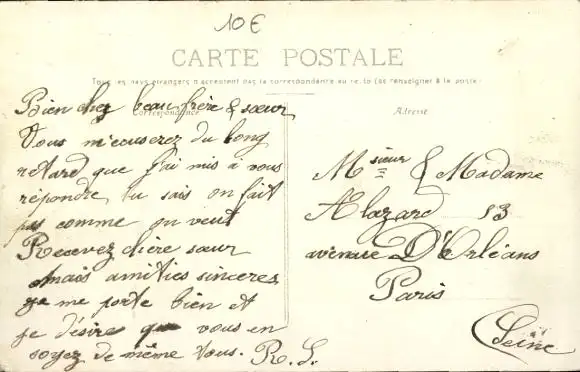 10 €
CARTE POSTALE
Tous les pays étrangers n'acceptent pas la correspondance au recto (se renseigner à la poste)
Correspondance
Bien cher beau frère & sœur
Vous m'ecuserez du long
retard que j'ai mis à vous
répondre, tu sais on fait
pas comme on veut
Recevez chère sœur
mais amitiés sincères
je me porte bien et
je désire que vous en
soyez de même tous. R. L.
Adresse
Msieur & Madame
Alazard 13
avenue D'Orléans
Paris
Seine